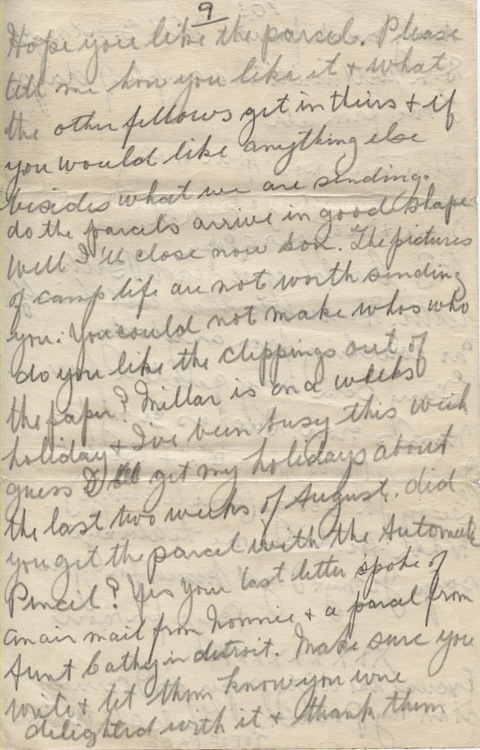 9
Hope you like the parcel. Please
tell me how you like it & what
the other fellows get in theirs & if
you would like anything else
besides what we are sending.
do the parcels arrive in good shape
Well I'll close now son. The pictures
of camp life are not worth sending
you. You could not make whos who
do you like the clippings out of
the paper? Millar is on a weeks
holiday & I've been busy this week
guess I'll get my holidays about
the last two weeks of August. did
you get the parcel with the Automatic
Pencil? Yes your last letter spoke of
an air mail from Nonnie & a parcel from
Aunt Cathy in detroit. Make sure you
write & let them know you were
delighted with it & thank them